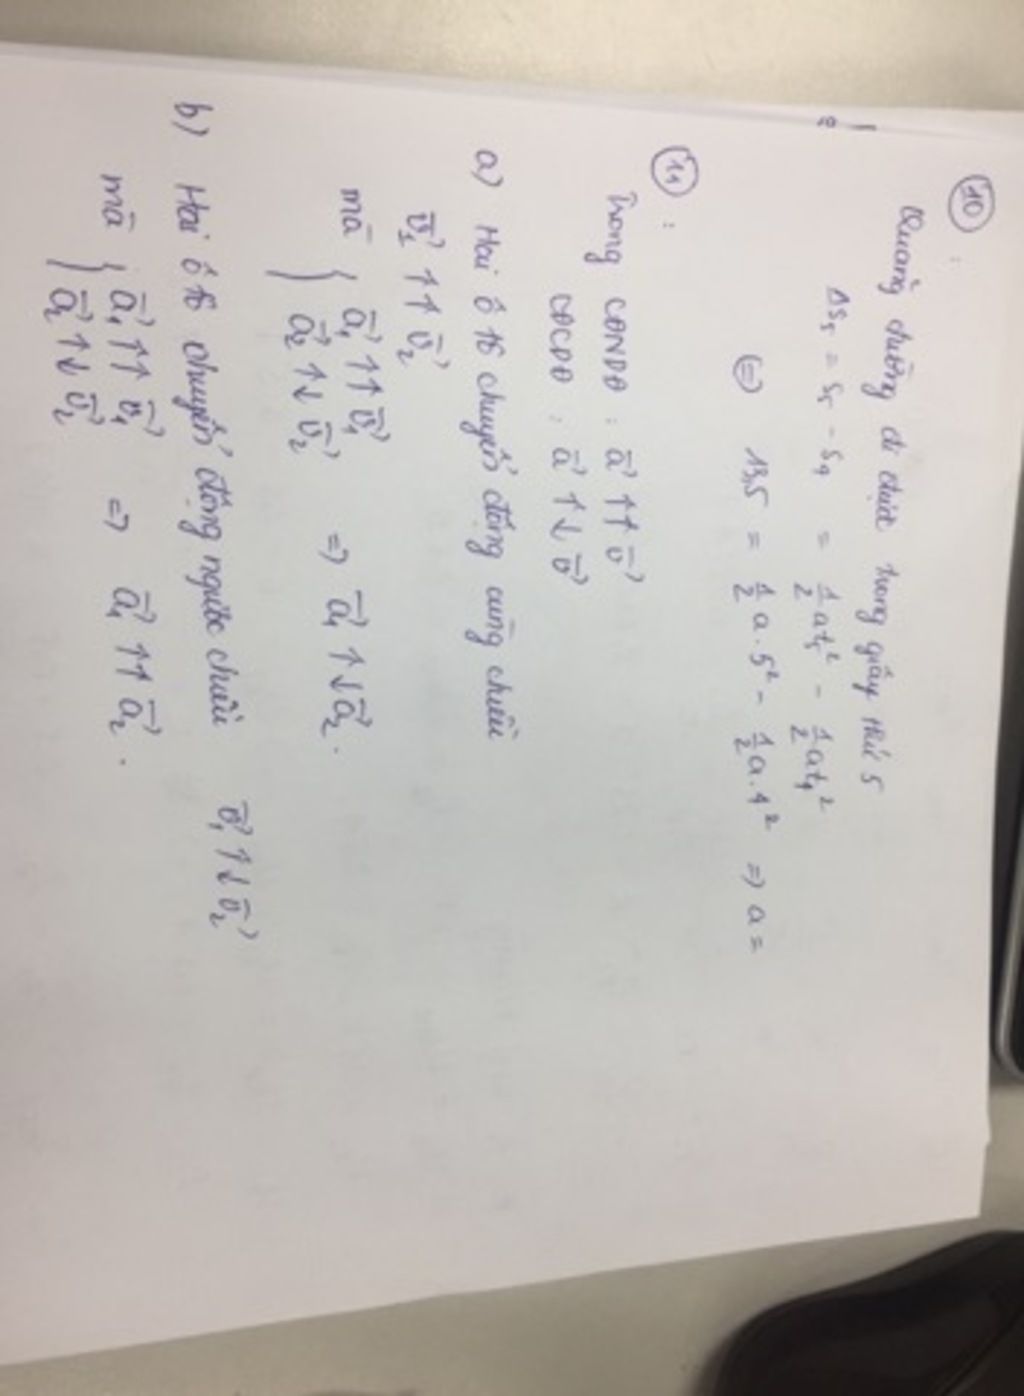 10 :
Quãng đường đi được trong giây thứ 5
Δs₅ = s₅ - s₄ = 1/2 at₅² - 1/2 at₄²
(=) 13,5 = 1/2 a . 5² - 1/2 a . 4² => a =
11 :
Trong CĐNDĐ : a⃗ ↑↑ v⃗
CĐCDĐ : a⃗ ↑↓ v⃗
a) Hai ô tô chuyển động cùng chiều
v⃗₁ ↑↑ v⃗₂
mà { a⃗₁ ↑↑ v⃗₁
a⃗₂ ↑↓ v⃗₂ => a⃗₁ ↑↓ a⃗₂ .
b) Hai ô tô chuyển động ngược chiều v⃗₁ ↑↓ v⃗₂
mà { a⃗₁ ↑↑ v⃗₁
a⃗₂ ↑↓ v⃗₂ => a⃗₁ ↑↑ a⃗₂ .